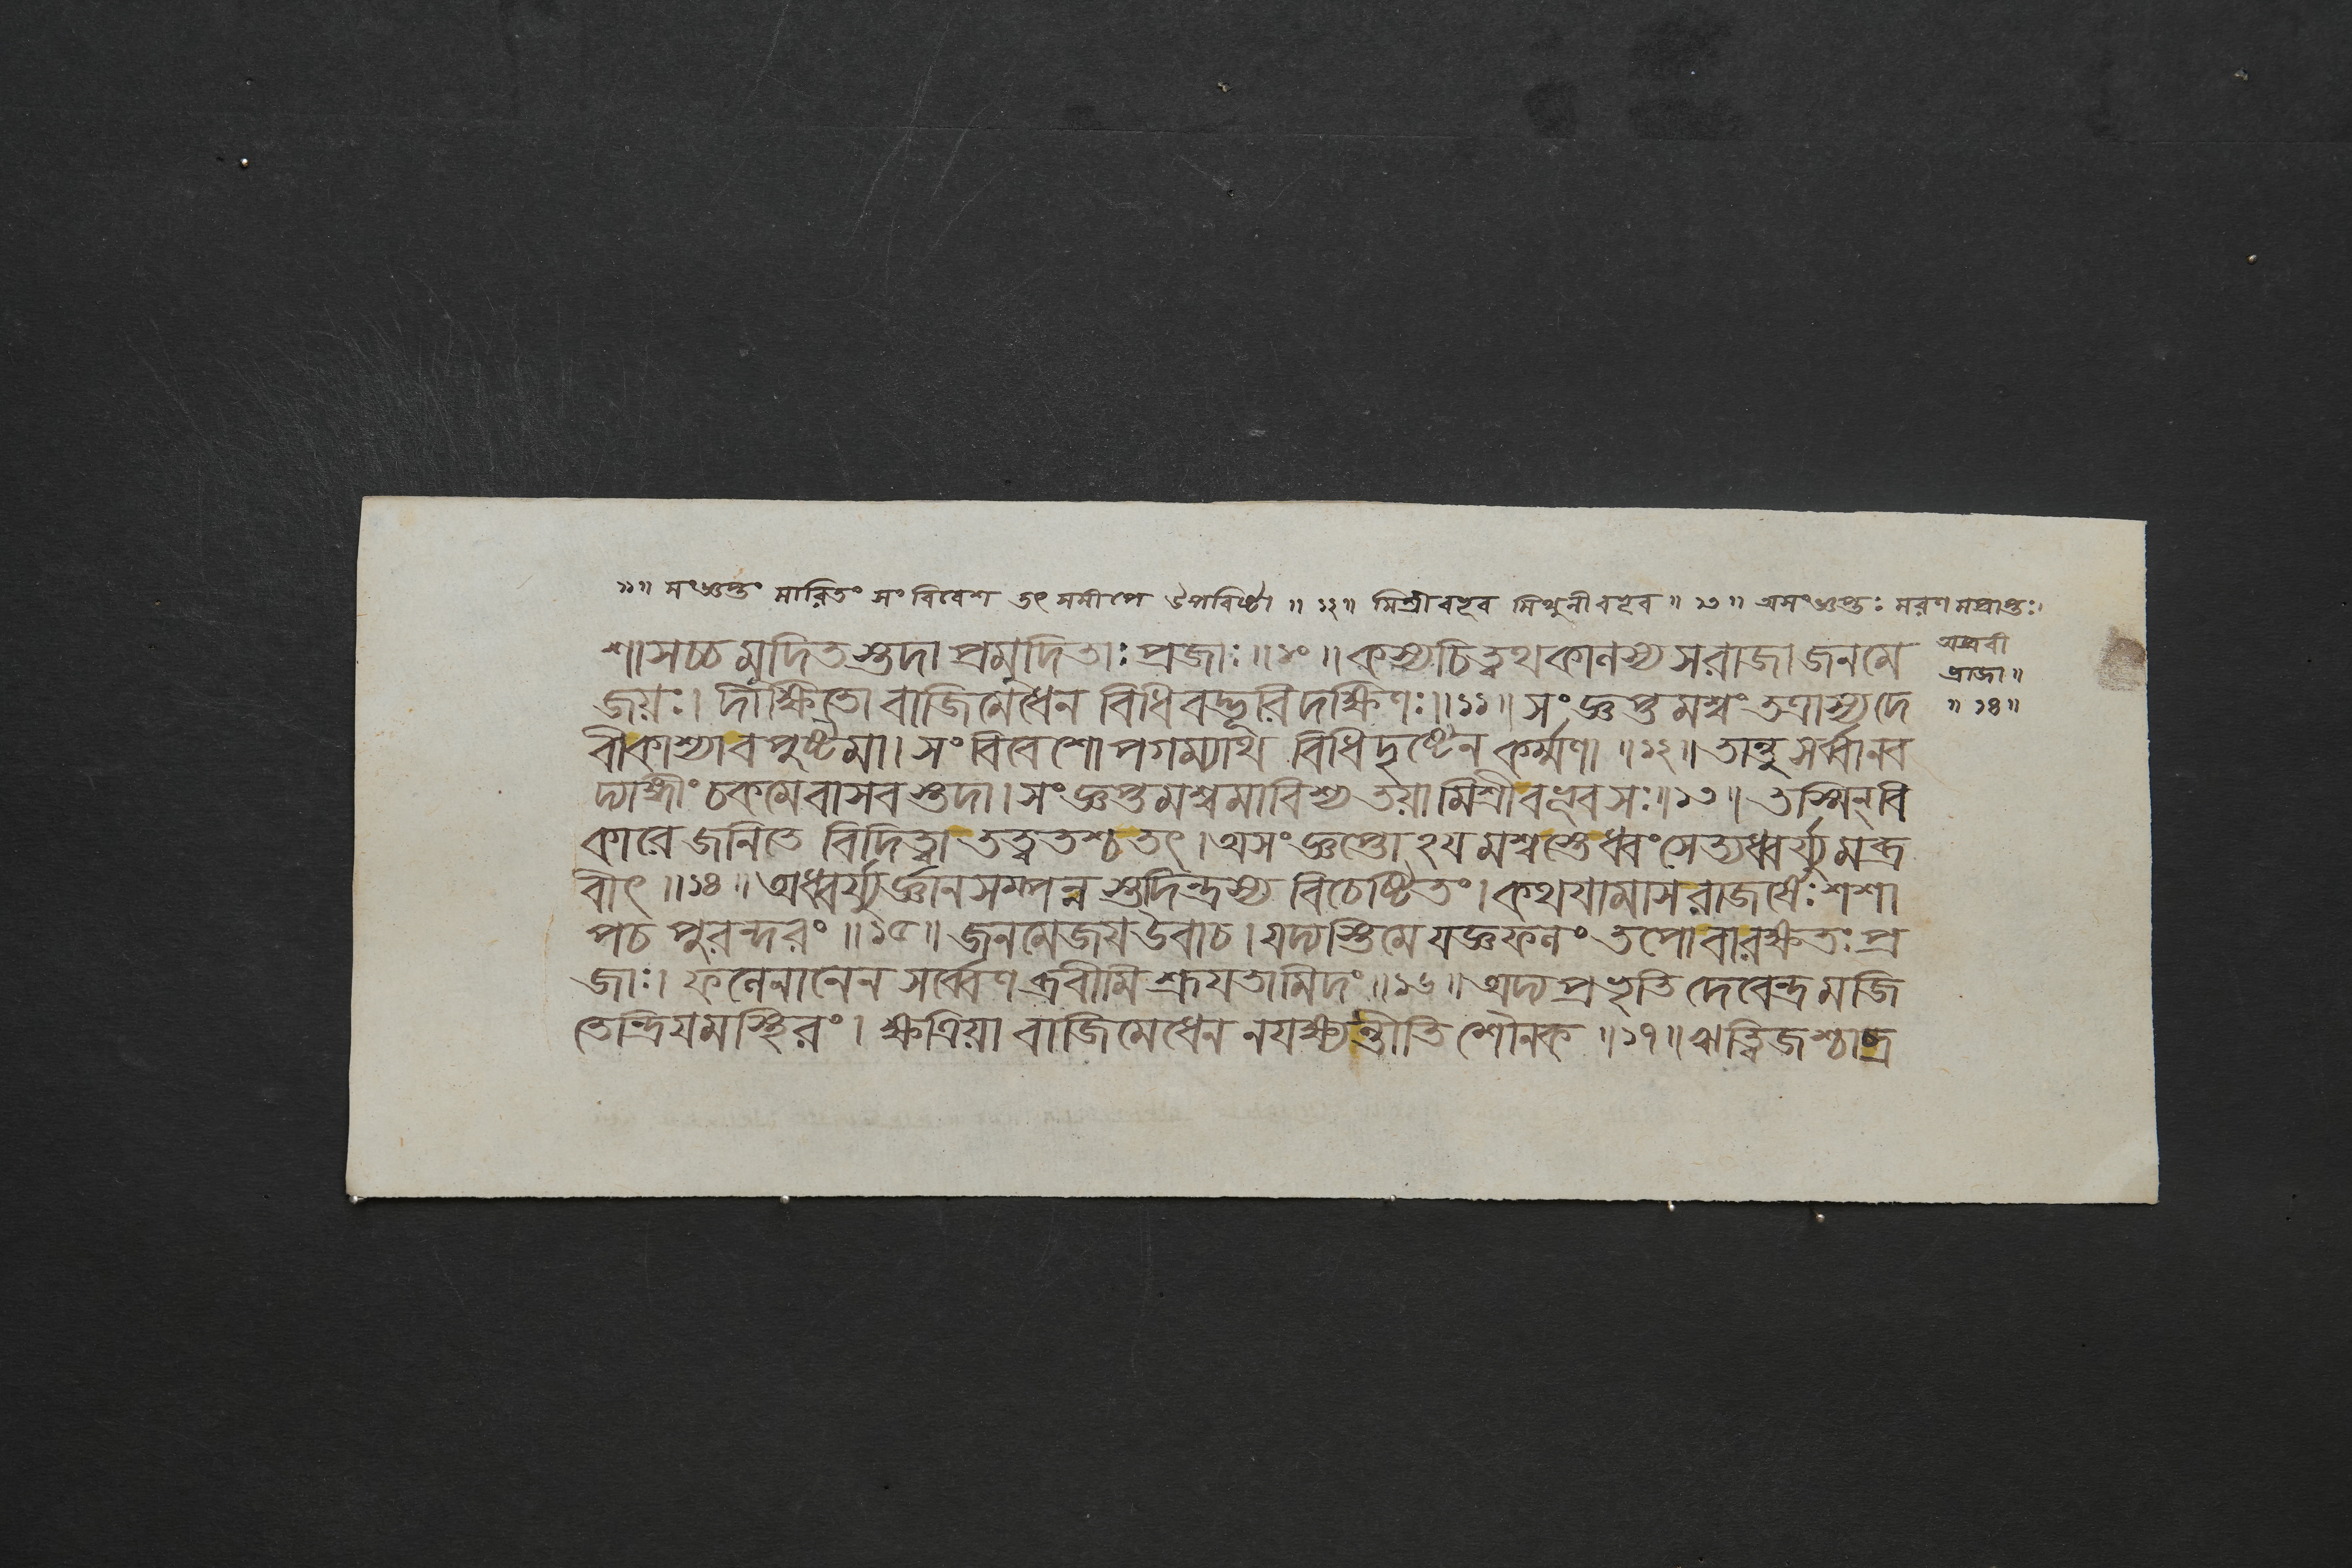 ১১॥ সংজ্ঞপ্তং মারিতং সংবিবেশ তৎ সমীপে উপবিষ্টা ॥ ১২॥ মিশ্রীবভূব মিথুনীবভূব ॥ ১৩॥ অসংজ্ঞপ্তঃ মরণমপ্রাপ্তঃ।
অব্রবী
দ্রাজা॥
॥ ১৪॥
শাসচ্চ মুদিতস্তদা প্রমুদিতাঃ প্রজাঃ॥১০॥ কস্যচিত্ত্বথ কালস্য স রাজা জনমে
জয়ঃ। দীক্ষিতো বাজিমেধেন বিধিবদ্ভূরিদক্ষিণঃ॥১১॥ সংজ্ঞপ্তমশ্বং তত্রাস্য দে
বী কাশ্যা বপুষ্টমা। সংবিবেশোপগম্যাথ বিধিদৃষ্টেন কর্ম্মণা ॥১২॥ তান্তু সর্ব্বানব
দ্যাঙ্গীং চকমে বাসবস্তদা। সংজ্ঞপ্তমশ্বমাবিশ্য তয়া মিশ্রীবভূব সঃ॥১৩॥ তস্মিন্ বি
কারে জনিতে বিদিত্বা তত্ত্বতশ্চ তৎ। অসংজ্ঞপ্তোঽযমশ্বস্তে ধ্বংসেত্যধ্বর্য্যুমব্র
বীৎ॥১৪॥ অধ্বর্য্যুর্জ্ঞানসম্পন্নস্তদিন্দ্রস্য বিচেষ্টিতং। কথযামাস রাজর্ষেঃ শশা
প চ পুরন্দরং॥১৫॥ জনমেজয উবাচ। যদ্যস্তি মে যজ্ঞফলং তপো বা রক্ষতঃ প্র
জাঃ। ফলেনানেন সর্ব্বেণ ব্রবীমি শ্রূযতামিদং॥১৬॥ অদ্য প্রভৃতি দেবেন্দ্রমজি
তেন্দ্রিযমস্থিরং। ক্ষত্রিয়া বাজিমেধেন ন যক্ষ্যন্তীতি শৌনক॥১৭॥ ঋত্বিজশ্চাব্র